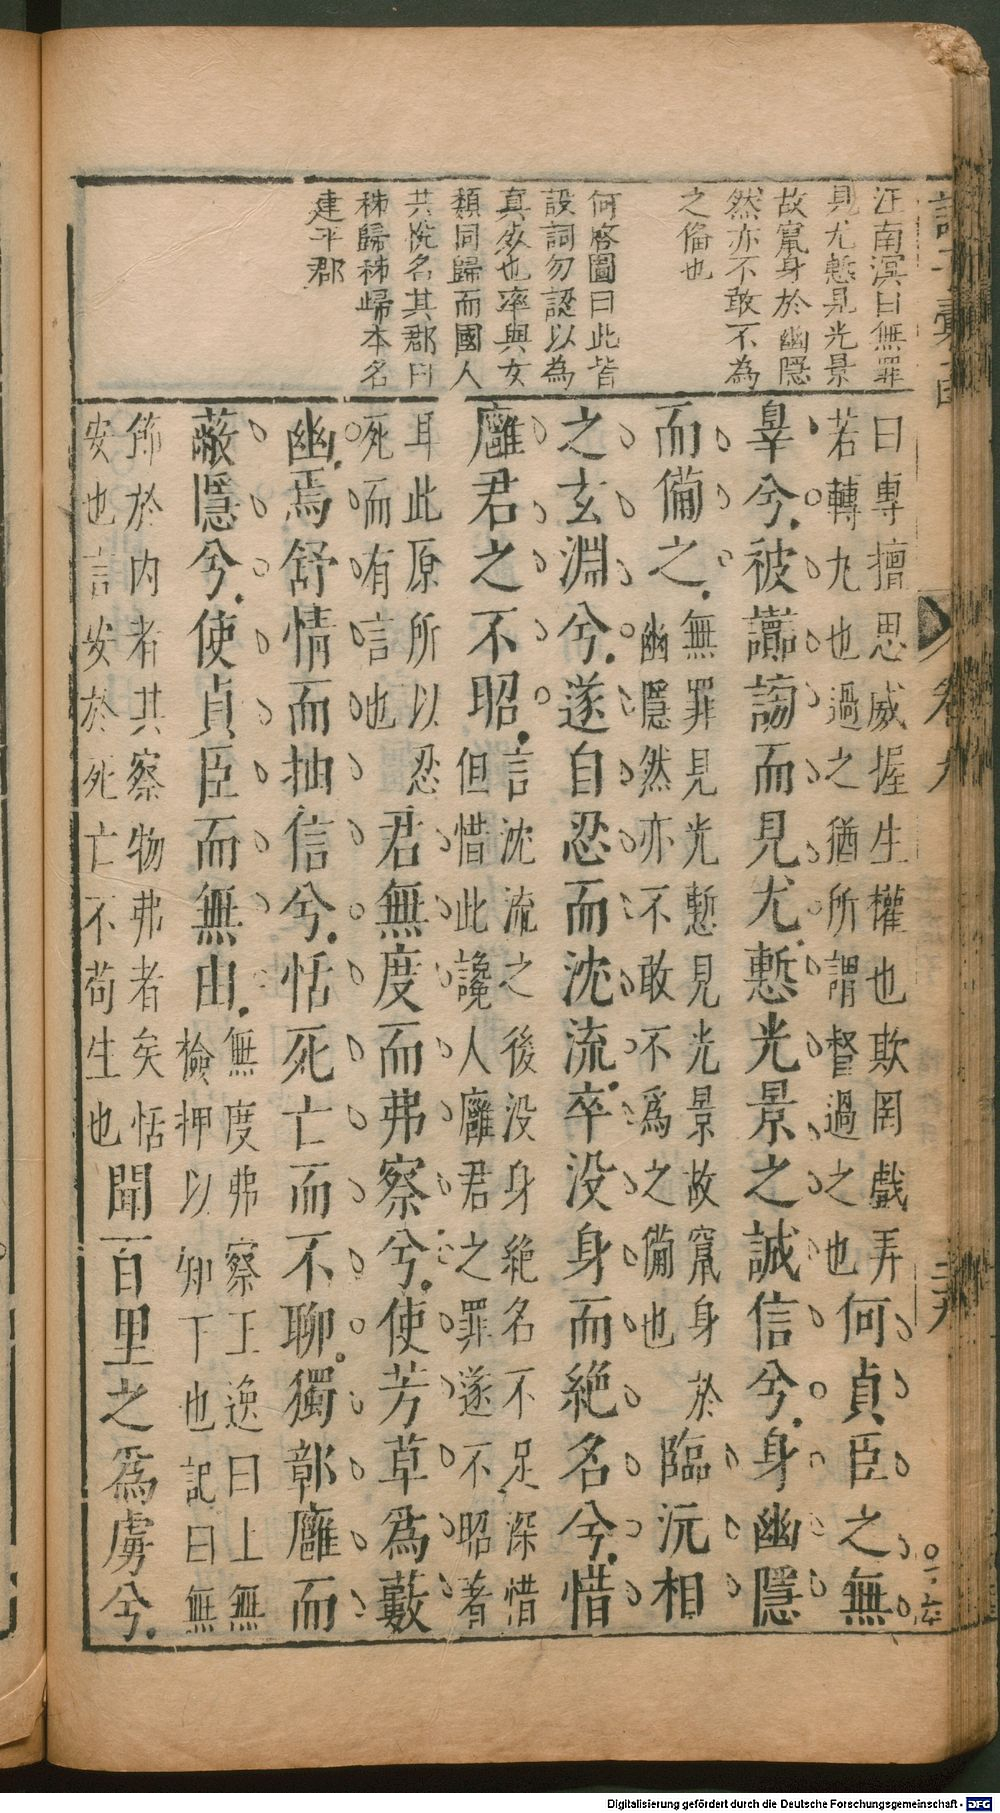 汪南溟曰無罪
見尤慙見光景
故竄身於幽隱
然亦不敢不為
之偹也
何啓圖曰此皆
設詞勿認以為
真𡵯也率與女
類同歸而國人
共恱名其郡曰
秭歸秭歸本名
建平郡
曰專擅思威握生權也欺罔戲弄
若轉九也過之猶所謂督過之也
何貞臣之無
辠兮被讟謗而見尤慙光景之誠信兮身幽隱
而備之
無罪見光慙見光景故竄身於
幽隱然亦不敢不爲之備也
臨沅相
之玄淵兮遂自忍而沈流卒没身而絶名兮惜
廱君之不昭
言沈流之後没身絶名不足深惜
但惜此讒人廱君之罪遂不昭著
耳此原所以忍
死而有言也
君無度而弗察兮使芳草爲藪
幽焉舒情而抽信兮恬死亡而不聊獨鄣廱而
蔽隱兮使貞臣而無由
無度弗察王逸曰上無
檢押以知下也記曰無
飾於内者其察物弗者矣恬
安也言安於死亡不苟生也
聞百里之爲虜兮
卷九
Digitalisierung gefördert durch die Deutsche Forschungsgemeinschaft - DFG